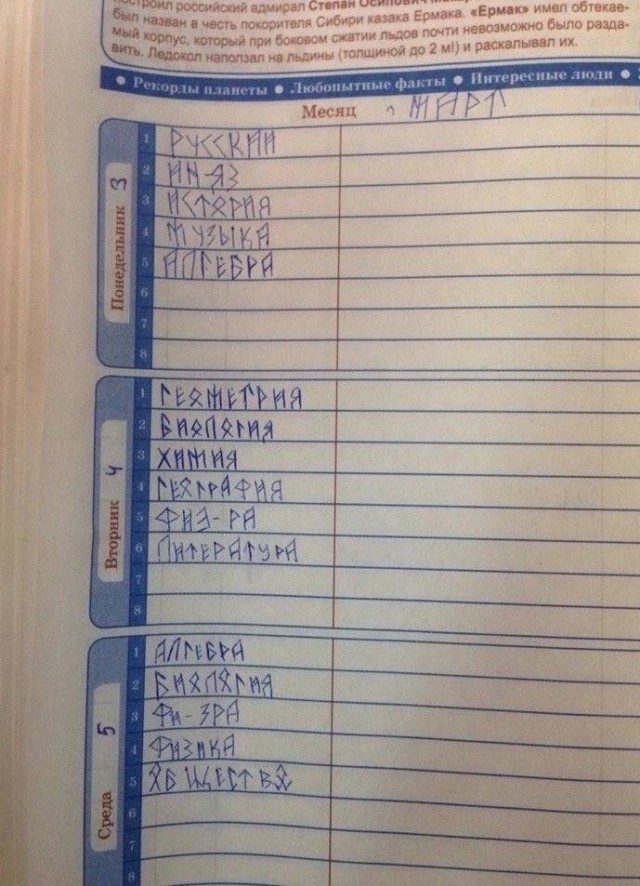 построил российский адмирал Степан Осипович
был назван в честь покорителя Сибири казака Ермака. «Ермак» имел обтекае-
мый корпус, который при боковом сжатии льдов почти невозможно было разда-
вить. Ледокол наползал на льдины (толщиной до 2 м!) и раскалывал их.
• Рекорды планеты • Любопытные факты • Интересные люди •
Месяц МАРТ
Понедельник 3
1 РУССКИЙ
2 ИН-ЯЗ
3 ИСТОРИЯ
4 МУЗЫКА
5 АЛГЕБРА
6
7
8
Вторник 4
1 ГЕОМЕТРИЯ
2 БИОЛОГИЯ
3 ХИМИЯ
4 ГЕОГРАФИЯ
5 ФИЗ-РА
6 ЛИТЕРАТУРА
7
8
Среда 5
1 АЛГЕБРА
2 БИОЛОГИЯ
3 ФИ-ЗРА
4 ФИЗИКА
5 ОБЩЕСТВО
6
7
8